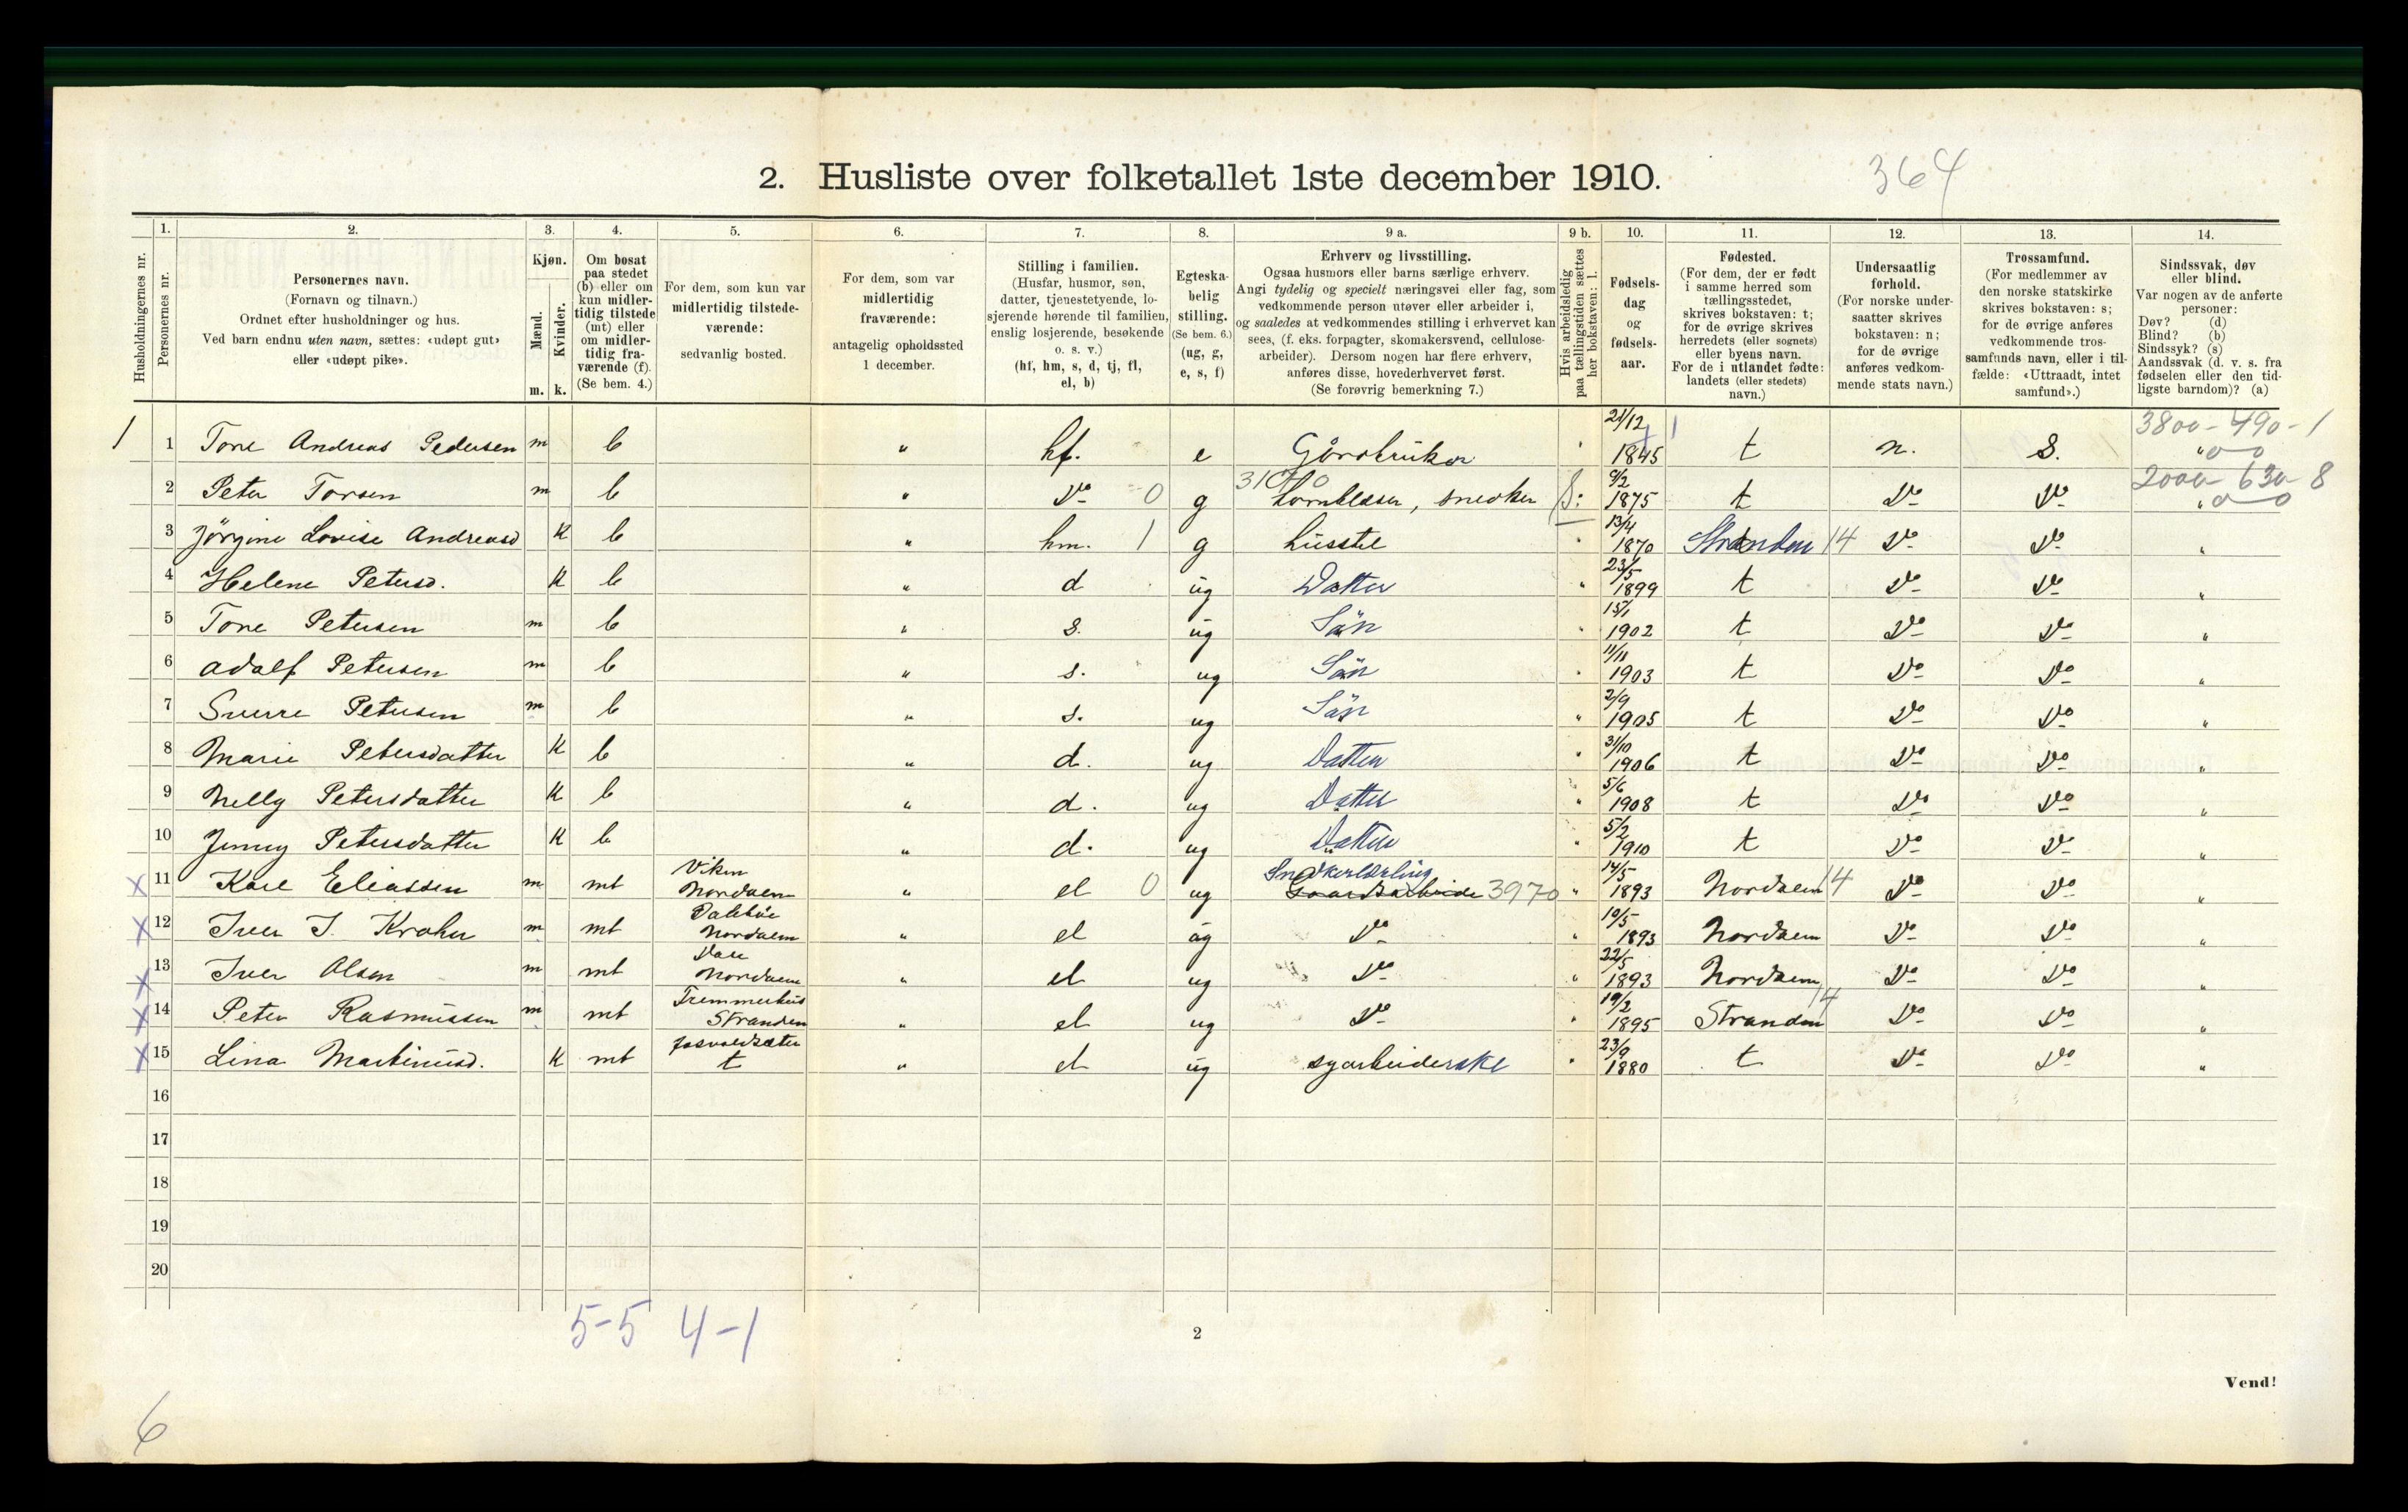 2. Husliste over folketallet 1ste december 1910.
364
Husholdningernes nr.
1.
Personernes nr.
2.
Personernes navn.
(Fornavn og tilnavn.)
Ordnet efter husholdninger og hus.
Ved barn endnu uten navn, sættes: «udøpt gut»
eller «udøpt pike».
3.
Kjøn.
Mænd.
Kvinder.
m. k.
4.
Om bosat
paa stedet
(b) eller om
kun midler-
tidig tilstede
(mt) eller
om midler-
tidig fra-
værende (f).
(Se bem. 4.)
5.
For dem, som kun var
midlertidig tilstede-
værende:
sedvanlig bosted.
6.
For dem, som var
midlertidig
fraværende:
antagelig opholdssted
1 december.
7.
Stilling i familien.
(Husfar, husmor, søn,
datter, tjenestetyende, lo-
sjerende hørende til familien,
enslig losjerende, besøkende
o. s. v.)
(hf, hm, s, d, tj, fl,
el, b)
8.
Egteska-
belig
stilling.
(Se bem. 6.)
(ug, g,
e, s, f)
9 a.
Erhverv og livsstilling.
Ogsaa husmors eller barns særlige erhverv.
Angi tydelig og specielt næringsvei eller fag, som
vedkommende person utøver eller arbeider i,
og saaledes at vedkommendes stilling i erhvervet kan
sees, (f. eks. forpagter, skomakersvend, cellulose-
arbeider). Dersom nogen har flere erhverv,
anføres disse, hovederhvervet først.
(Se forøvrig bemerkning 7.)
9 b.
Hvis arbeidsledig
paa tællingstiden sættes
her bokstaven: l.
10.
Fødsels-
dag
og
fødsels-
aar.
11.
Fødested.
(For dem, der er født
i samme herred som
tællingsstedet,
skrives bokstaven: t;
for de øvrige skrives
herredets (eller sognets)
eller byens navn.
For de i utlandet fødte:
landets (eller stedets)
navn.)
12.
Undersaatlig
forhold.
(For norske under-
saatter skrives
bokstaven: n;
for de øvrige
anføres vedkom-
mende stats navn.)
13.
Trossamfund.
(For medlemmer av
den norske statskirke
skrives bokstaven: s;
for de øvrige anføres
vedkommende tros-
samfunds navn, eller i til-
fælde: «Uttraadt, intet
samfund».)
14.
Sindssvak, døv
eller blind.
Var nogen av de anførte
personer:
Døv? (d)
Blind? (b)
Sindssyk? (s)
Aandssvak (d. v. s. fra
fødselen eller den tid-
ligste barndom)? (a)
1 1 Tore Andreas Pedersen m b " hf. e Gårdbruker " 21/12 1845 t n. S. 3800-490-1 "
2 Peter Torsen m b " Do 0 g 310 0 hornblæser, snedker 9/2 1875 t Do Do 2000-630-8 "
3 Jörgine Lovise Andreasd K b " hm. 1 g husstel " 13/4 1870 Stranden 14 Do Do "
4 Helene Petersd. K b " d ug Datter " 23/5 1899 t Do Do "
5 Tore Petersen m b " s. ug Sön " 15/1 1902 t Do Do "
6 Adolf Petersen m b " s. ug Sön " 11/11 1903 t Do Do "
7 Sverre Petersen m b " s. ug Sön " 2/9 1905 t Do Do "
8 Marie Petersdatter K b " d. ug Datter " 31/10 1906 t Do Do "
9 Nelly Petersdatter K b " d. ug Datter " 5/6 1908 t Do Do "
10 Jenny Petersdatter K b " d. ug Datter " 5/2 1910 t Do Do "
x 11 Kare Eliassen m mt Viken Nordalen " el 0 ug Snedkerlærling Gaardsarbeide 3970 " 14/5 1893 Nordalen 14 Do Do "
x 12 Iver I. Krohn m mt Dalebü Nordalen " el ug Do " 10/5 1893 Nordalen Do Do "
x 13 Iver Olsen m mt Dale Nordalen " el ug Do " 22/5 1893 Nordalen Do Do "
x 14 Peter Rasmussen m mt Fremmerhus Stranden " el ug Do " 19/2 1895 Stranden 14 Do Do "
x 15 Lina Martinusd. K mt t " el ug syarbeiderske " 23/9 1880 t Do Do "
16
17
18
19
20
5-5 4-1
2
Vend!
6